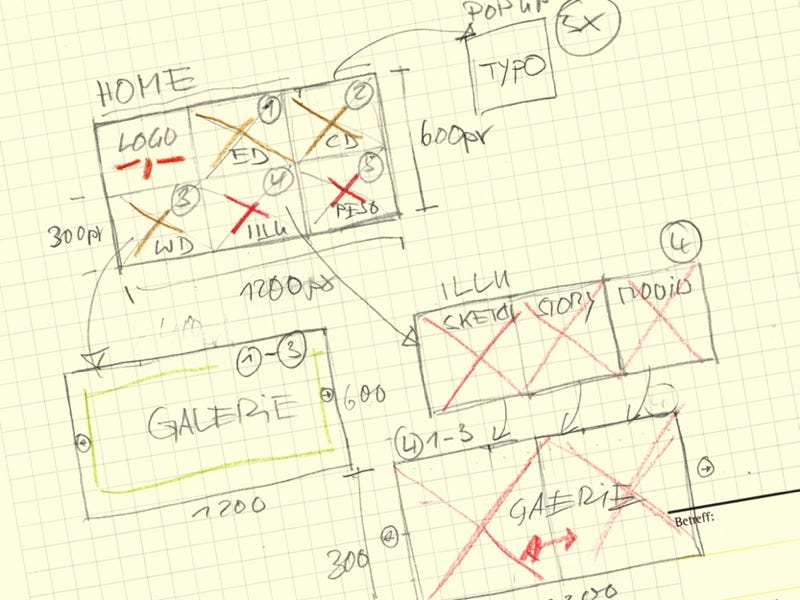 POPUP
3x
HOME
TYPO
LOGO
1
2
ED
CD
600px
3
4
5
300px
WD
ILLU
1200px
4
ILLU
SKETCH
STORY
1-3
600
GALERIE
4 1-3
1200
GALERIE
Betreff:
300